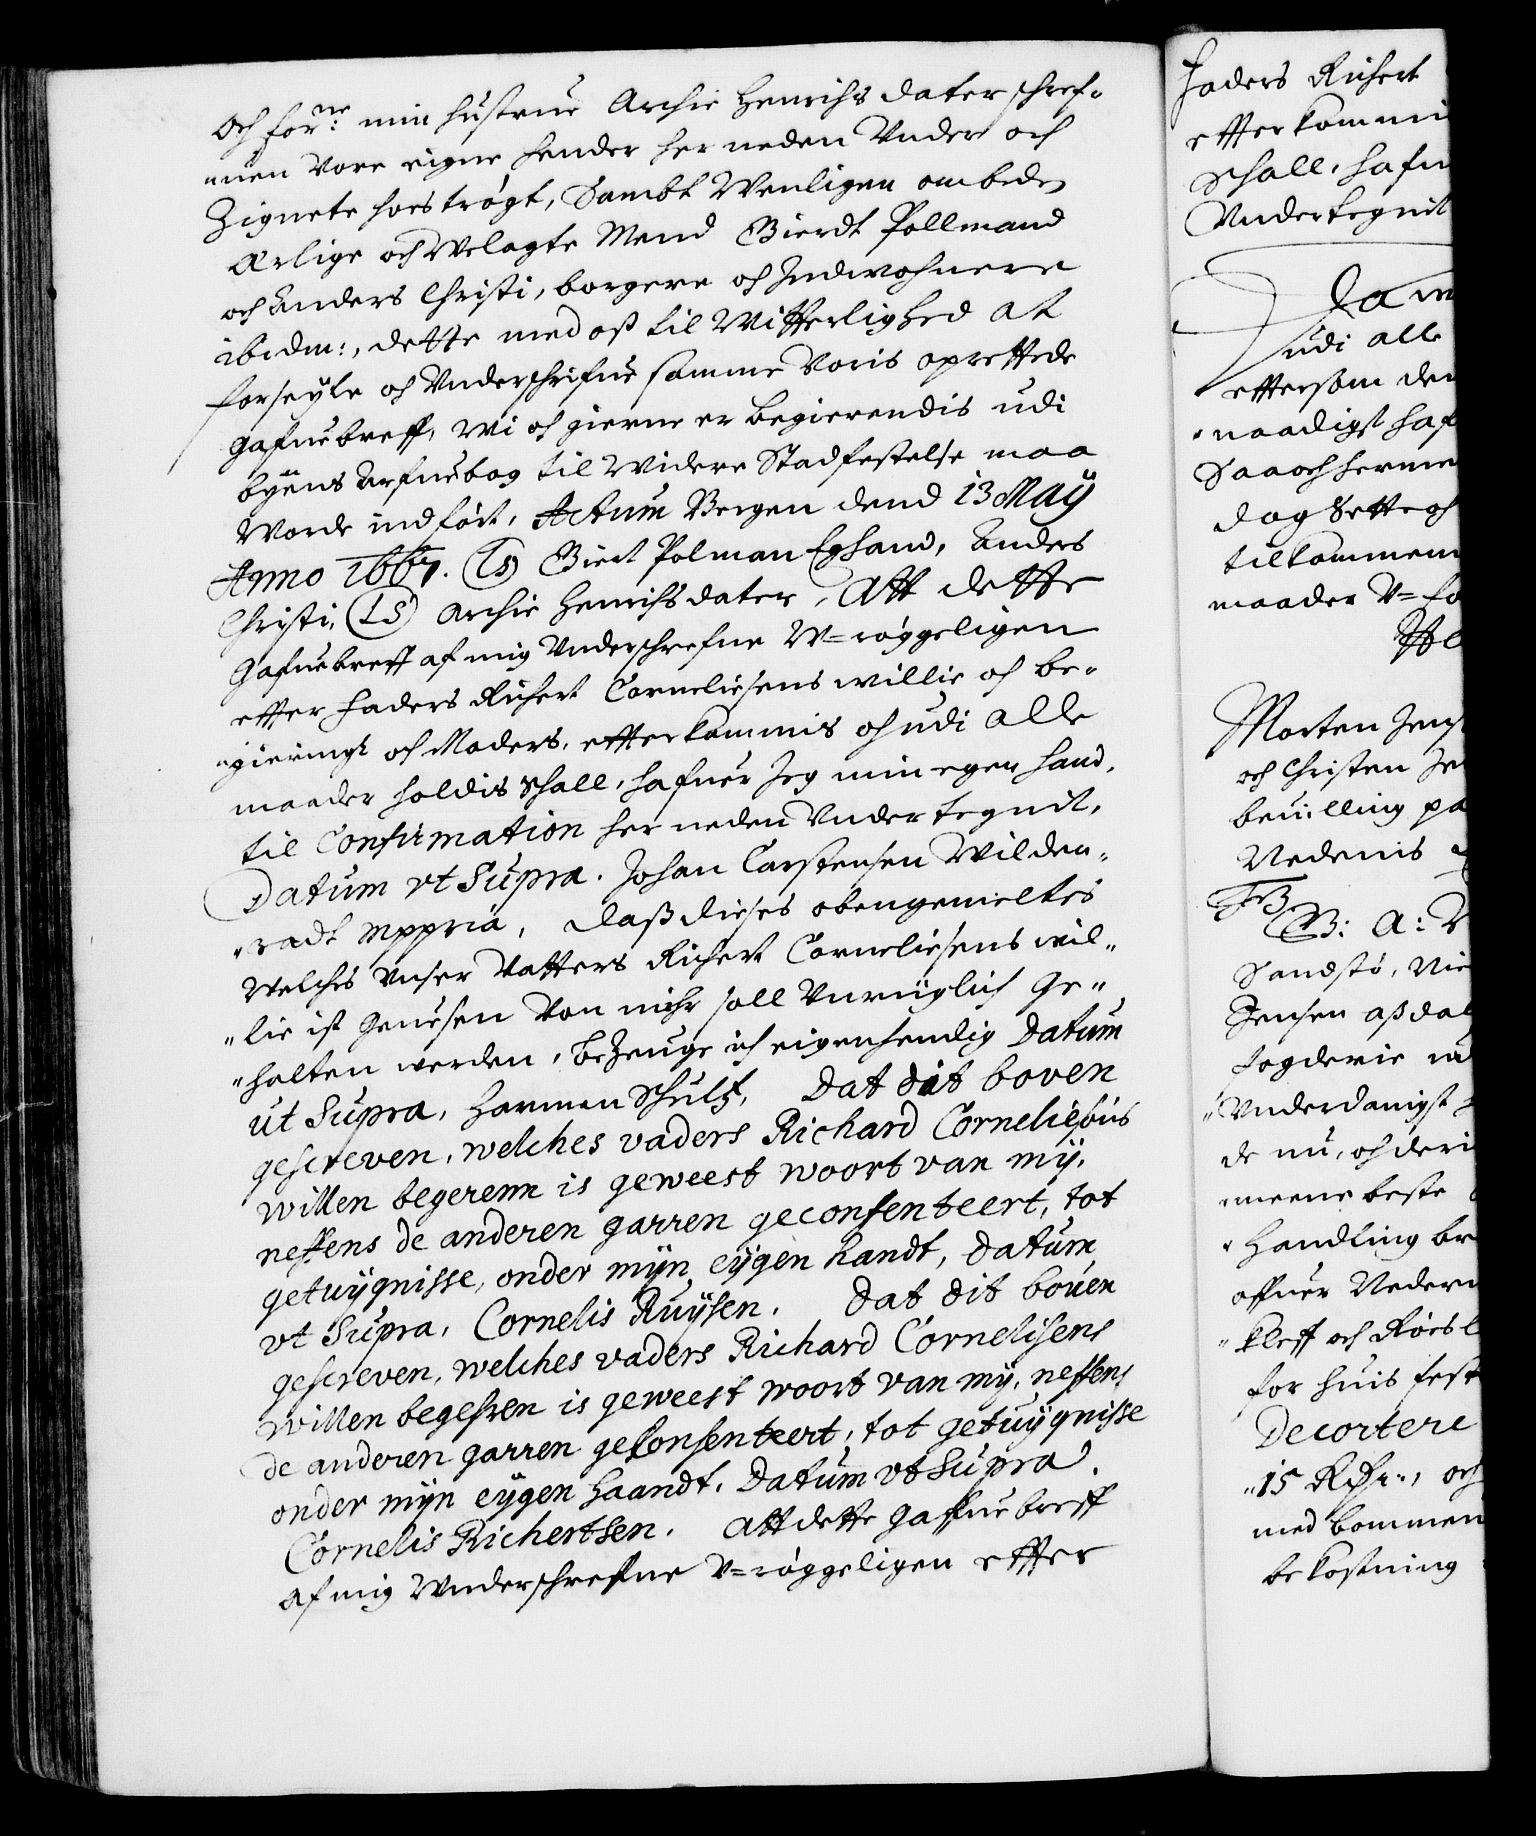 och for:ne min hustrue Archie Henrichs dater schref„
„uen Vore eigne hender her neden Vnder och
Zignete hos trøgt, Sambt Wenligen ombeden
Ærlige och Velagte Mend Gierdt Pollmand
och Anders Christi, borgere och Indwohnere
ibidm:, dette med oß til Witterlighed at
forseyle och Vnderschrifue samme Voris oprettede
gafuebreff, Wi och gierne er begierendis udi
byens Arfuebog til Widere Stadfestelse maa
Worde indført, Actum Bergen dend 13 Maÿ
Anno 1667. (LS) Giert Polman Eghand, Anders
Christi, (LS) Archie Henrichsdater, Att dette
Gafuebreff af mig Vnderschrefne W=røggeligen
etter faders Richert Corneliesens willie och be„
„gieringh och Moders, etterkommis och udi alle
maader holdis schall, hafuer Jeg min egen hand,
til Confirmation her neden Vndertegnit,
Datum vt Supra. Johan Carstensen Wilden„
„radt mppria, Daß dieses obengemeltes
Welches Vnser Vatters Richert Corneliesens wil„
„lie ist gewesen Von mihr soll Vnrüglich Ge„
„halten werden, beZeuge ich eigenhendig Datum
ut Supra, Harmen Schultz, Dat dit boven
gescreven, welches vaders Richard Corneliesus
willen begerenn is geweest woort van mÿ,
neffens de anderen garren geconsenteert, tot
getuÿgnisse, onder mÿn eÿgen handt, Datum
vt Supra, Cornelis Ruÿsen. Dat dit bouen
gescreven, welches vaders Richard Cornelisens
willen begehren is geweest woort van mÿ, neffens
de anderen garren gekonsenteert, tot getuÿgnisse
onder mÿn eÿgen Haandt, Datum vt Supra.
Cornelis Richertsen. Att dette gaffuebreff
af mig Wnderschrefne V=røggeligen etter
faders Richert
etterkommi
Schall, hafu
Vndertegnit
udi alle
ettersom den
„naadigst haf
dag Sette och
tilkommen
maader V= fo
Morten Jens
och Christen Je
beuilling pa
Nedenis
B: A:
Sandstø, Nie
Jensen
fogderie
„Vnderdanigst
de nu, och deri
meene beste
„Handling br
„kleff och
for huis fest
Decortere
„15 Rdr„, och
med bommen
bekostning